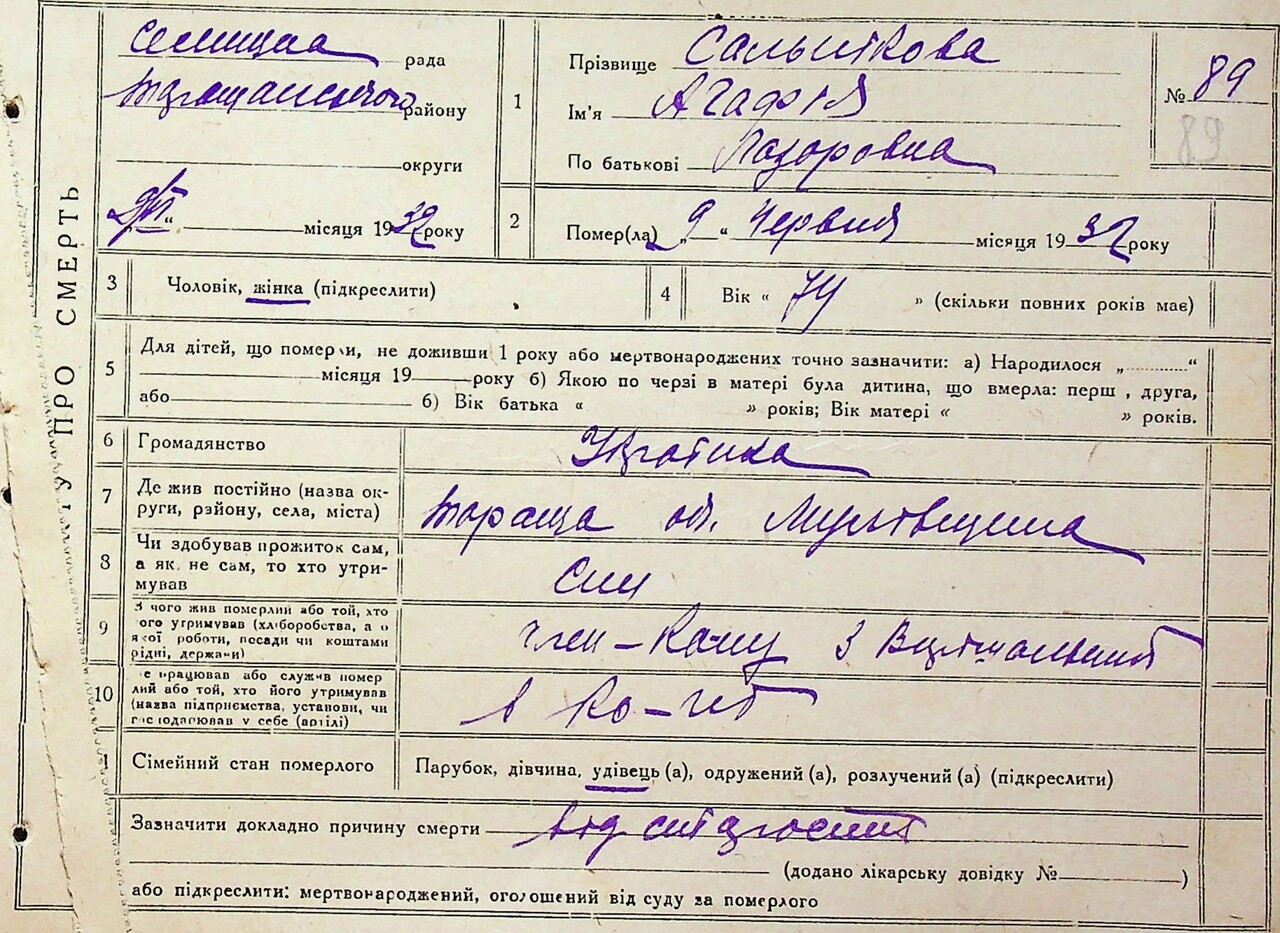 ТУ ПРО СМЕРТЬ
Селищна рада
району
округи
місяця 1932 року
1
Прізвище Сальнікова
Ім'я Агафія
По батькові Лазоровна
№ 89
89
2
Помер(ла) „9“ Червня місяця 1932 року
3 Чоловік, жінка (підкреслити)
4 Вік « 74 » (скільки повних років має)
5
Для дітей, що померли, не доживши 1 року або мертвонароджених точно зазначити: а) Народилося „ “
місяця 19 року б) Якою по черзі в матері була дитина, що вмерла: перш , друга,
або б) Вік батька « » років; Вік матері « » років.
6 Громадянство Українка
7 Де жив постійно (назва ок-
руги, району, села, міста)
Тараща
8 Чи здобував прожиток сам,
а як не сам, то хто утри-
мував
Син
9 З чого жив померлий або той, хто
ого утримував (хліборобства, а о
якої роботи, посади чи коштами
рідні, держави)
член - 3
10 е працював або служив помер
лий або той, хто його утримував
(назва підприємства, установи, чи
господарював у себе (вдома)
в
1 Сімейний стан померлого Парубок, дівчина, удівець (а), одружений (а), розлучений (а) (підкреслити)
Зазначити докладно причину смерти від старости
(додано лікарську довідку № )
або підкреслити: мертвонароджений, оголошений від суду за померлого